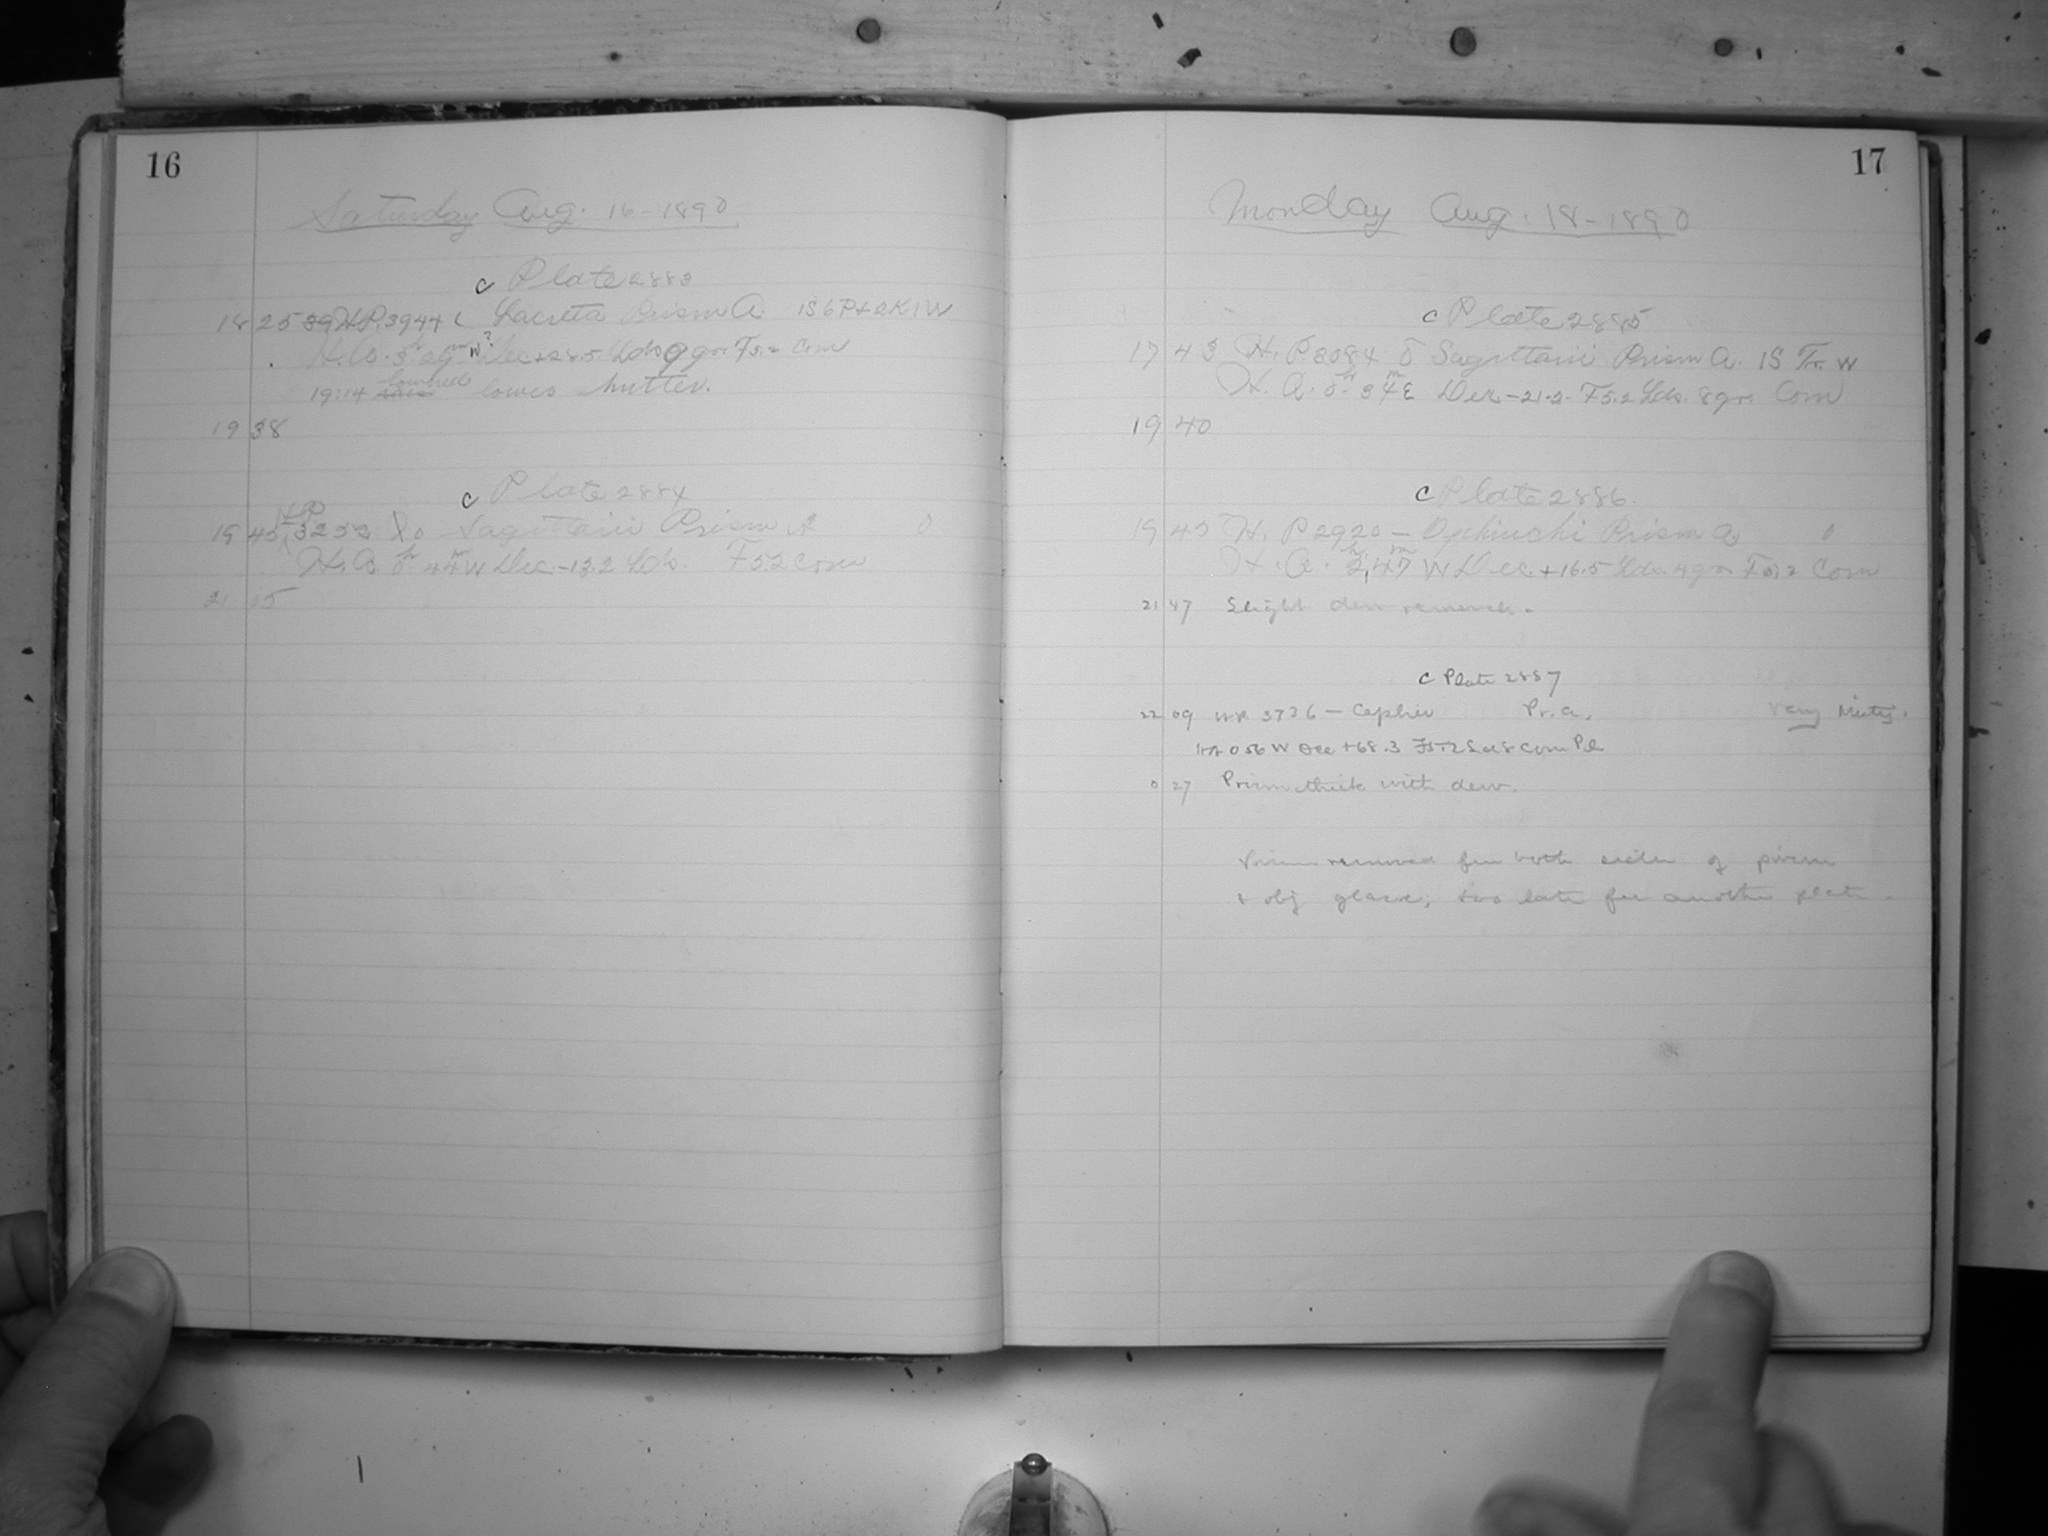 16
Saturday Aug. 16-1890
C Plate 2883
18 25 39 H.P. 3944 Lacerta Prism A. 1S6P+2K1W
H.A. 3h 29m W? Dec +28.5 Sds 9 gr F5.2 Com
19:14 lowered lower shutter.
19 38
C Plate 2884
HP
19 45 3252 Sagittarii Prism A 0
H.A. 0h 44m W Dec. -13.2 Sds. F5.2 Com
21 05
17
Monday Aug. 18-1890
C Plate 2885
17 43 H.P. 3084 δ Sagittarii Prism A. 1S Tr. W
H.A. 0h 34m E Dec -21.2 F5.2 Sds. 8 gr. Com
19 40
C Plate 2886.
19 45 H.P 2920 - Ophiuchi Prism A. 0
H.A. 2h,47m W Dec. +16.5 Sds. 4 gr. F5.2 Com
21 47 Slight dew removed.
C Plate 2887
22 09 H.P. 3736 - Cephei Pr. A. Very Misty.
HA 0 56 W Dec +68.3 F5.2 Sds 8 Com Pl
0 27 Prism thick with dew.
removed fm both sides of prism
+ obj glass; too late for another plate.